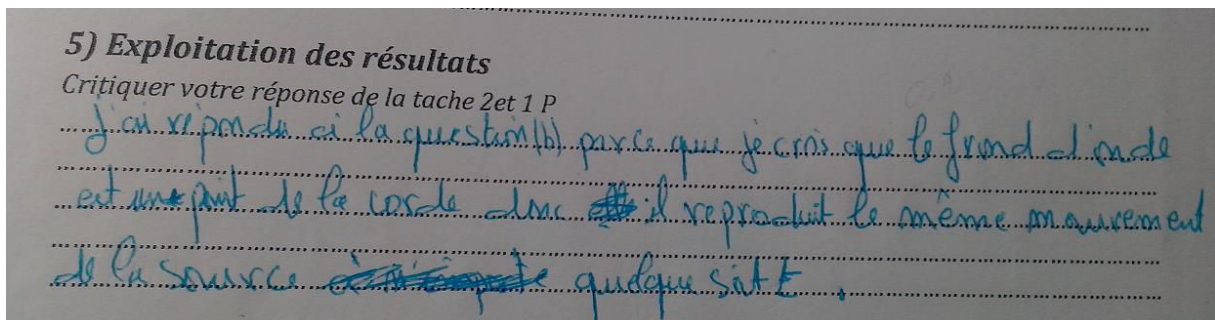 5) Exploitation des résultats
Critiquer votre réponse de la tache 2et 1 P
j'ai répondu à la question (b) parce que je crois que le frond d'onde
est un point de la corde donc il reproduit le même mouvement
de la source quelque soit t.